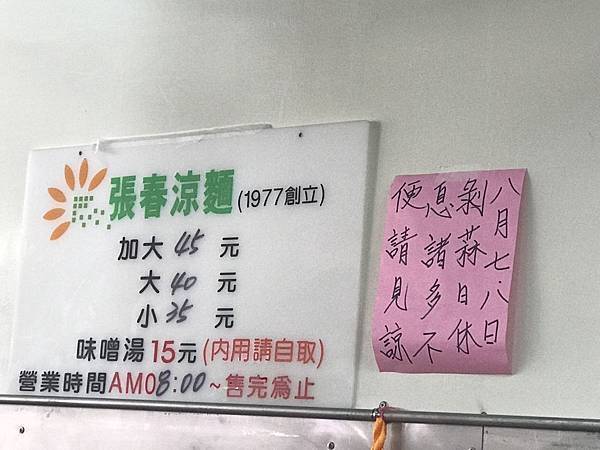 張春涼麵(1977創立)
加大 45 元
大 40 元
小 35 元
味噌湯15元(內用請自取)
營業時間AM08:00~售完為止
八月七、八日
剝蒜日休
息諸多不
便請見諒